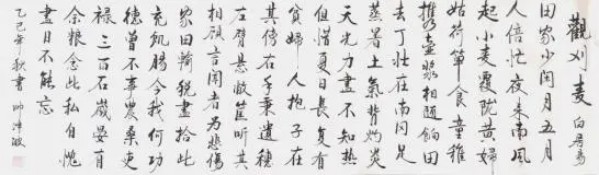 觀刈麥 白居易
田家少閑月五月
人倍忙夜來南風
起小麥覆隴黃婦
姑荷簞食童稚
攜壺漿相隨餉田
去丁壯在南岡足
蒸暑土氣背灼炎
天光力盡不知熱
但惜夏日長復有
貧婦人抱子在
其傍右手秉遺穗
左臂懸敝筐聽其
相顧言聞者為悲傷
家田輸稅盡拾此
充飢腸今我何功
德曾不事農桑吏
祿三百石歲晏有
余粮念此私自愧
盡日不能忘
乙巳年秋書